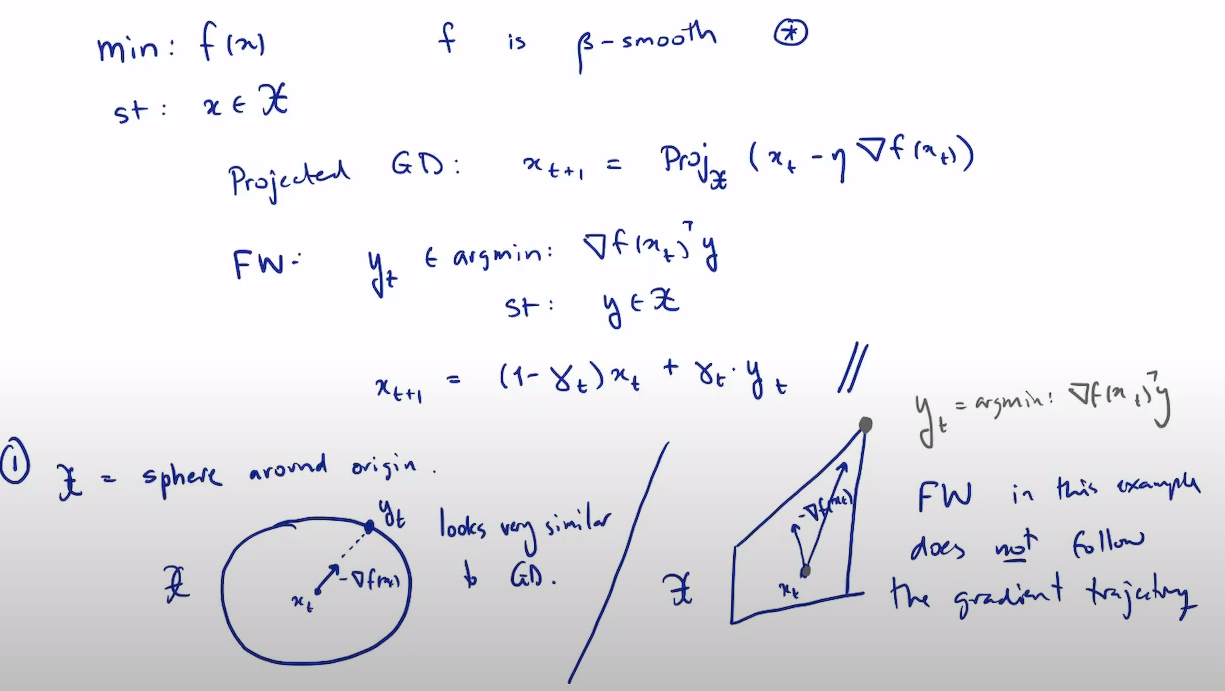 min: f(x)    f is β-smooth ⊛
st: x ∈ 𝒳
Projected GD: x_{t+1} = Proj_𝒳 (x_t - η ∇f(x_t))
FW: y_t ∈ argmin: ∇f(x_t)^T y
st: y ∈ 𝒳
x_{t+1} = (1-γ_t) x_t + γ_t · y_t //
① 𝒳 = sphere around origin.
y_t
-∇f(x_t)
x_t
𝒳
looks very similar
to GD.
y_t = argmin: ∇f(x_t)^T y
-∇f(x_t)
x_t
𝒳
FW in this example
does not follow
the gradient trajectory